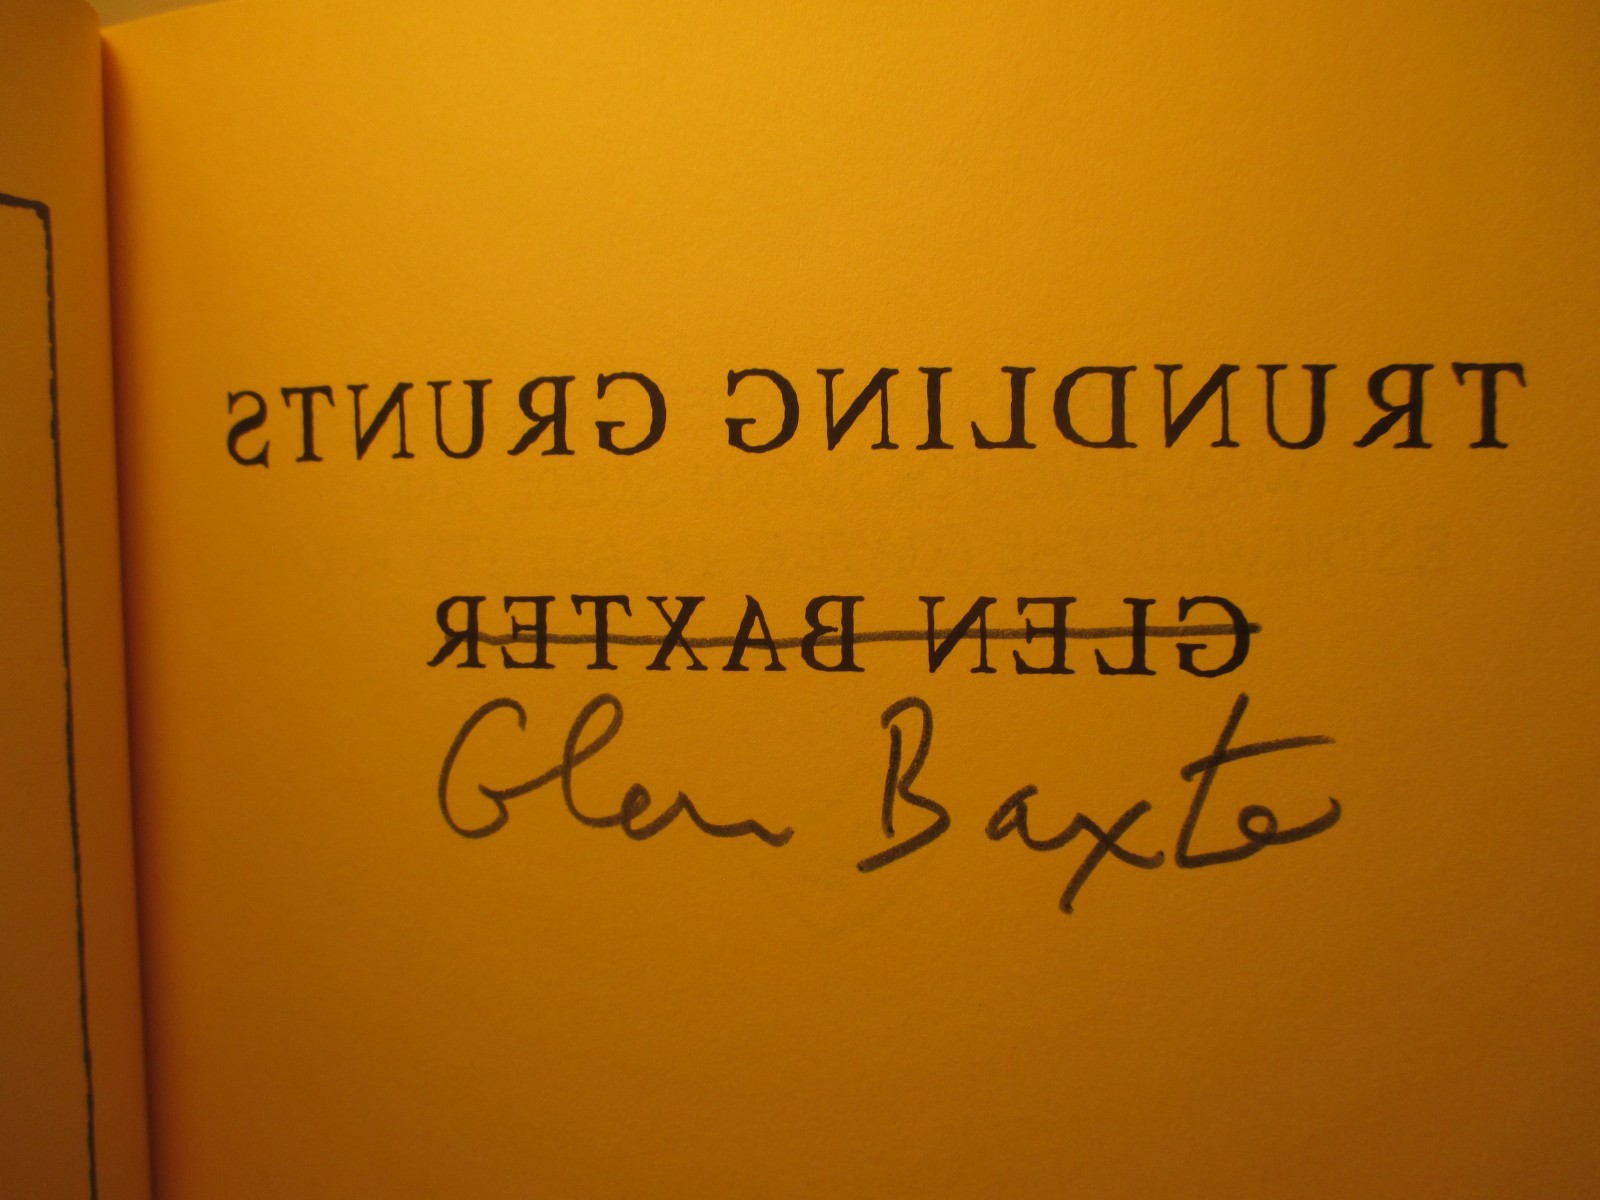 TRUNDLING GRUNTS
GLEN BAXTER
Glen Baxter